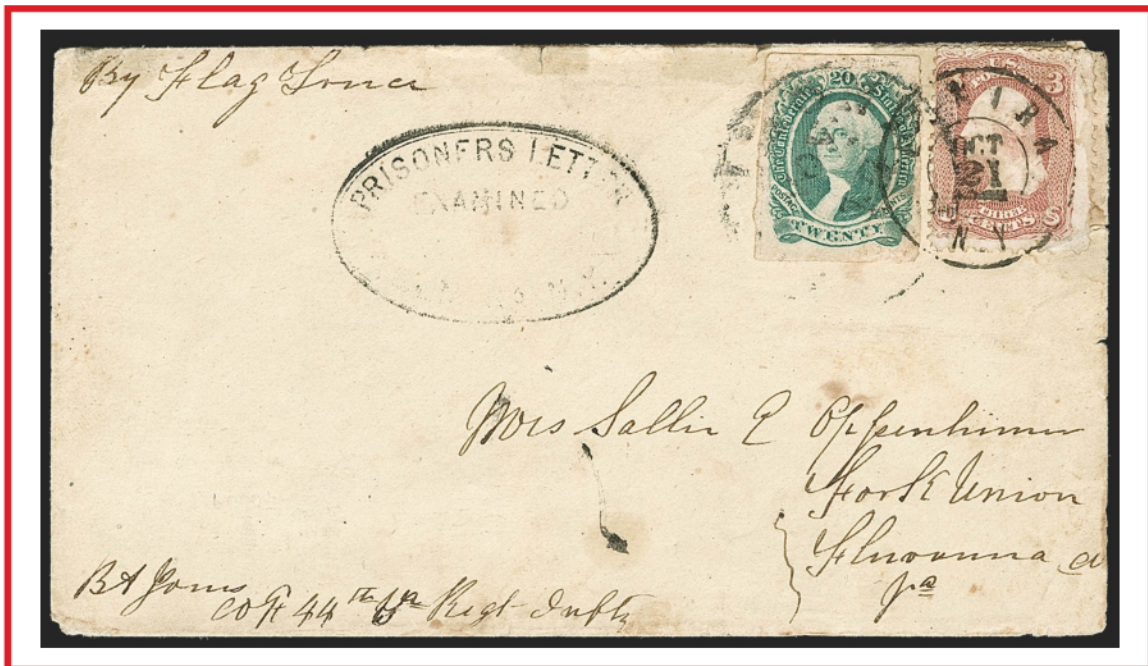 By Flag Truce
PRISONERS LETTER
EXAMINED
N.Y.
20
The Confederate States of America
POSTAGE
TWENTY
U.S.
POSTAGE
3
THREE
CENTS
OCT
21
N.Y.
Mrs Sallie E Oppenhimer
Fork Union
Fluvanna Co
Va
B A Jones
Co F 44th Va Regt Infty